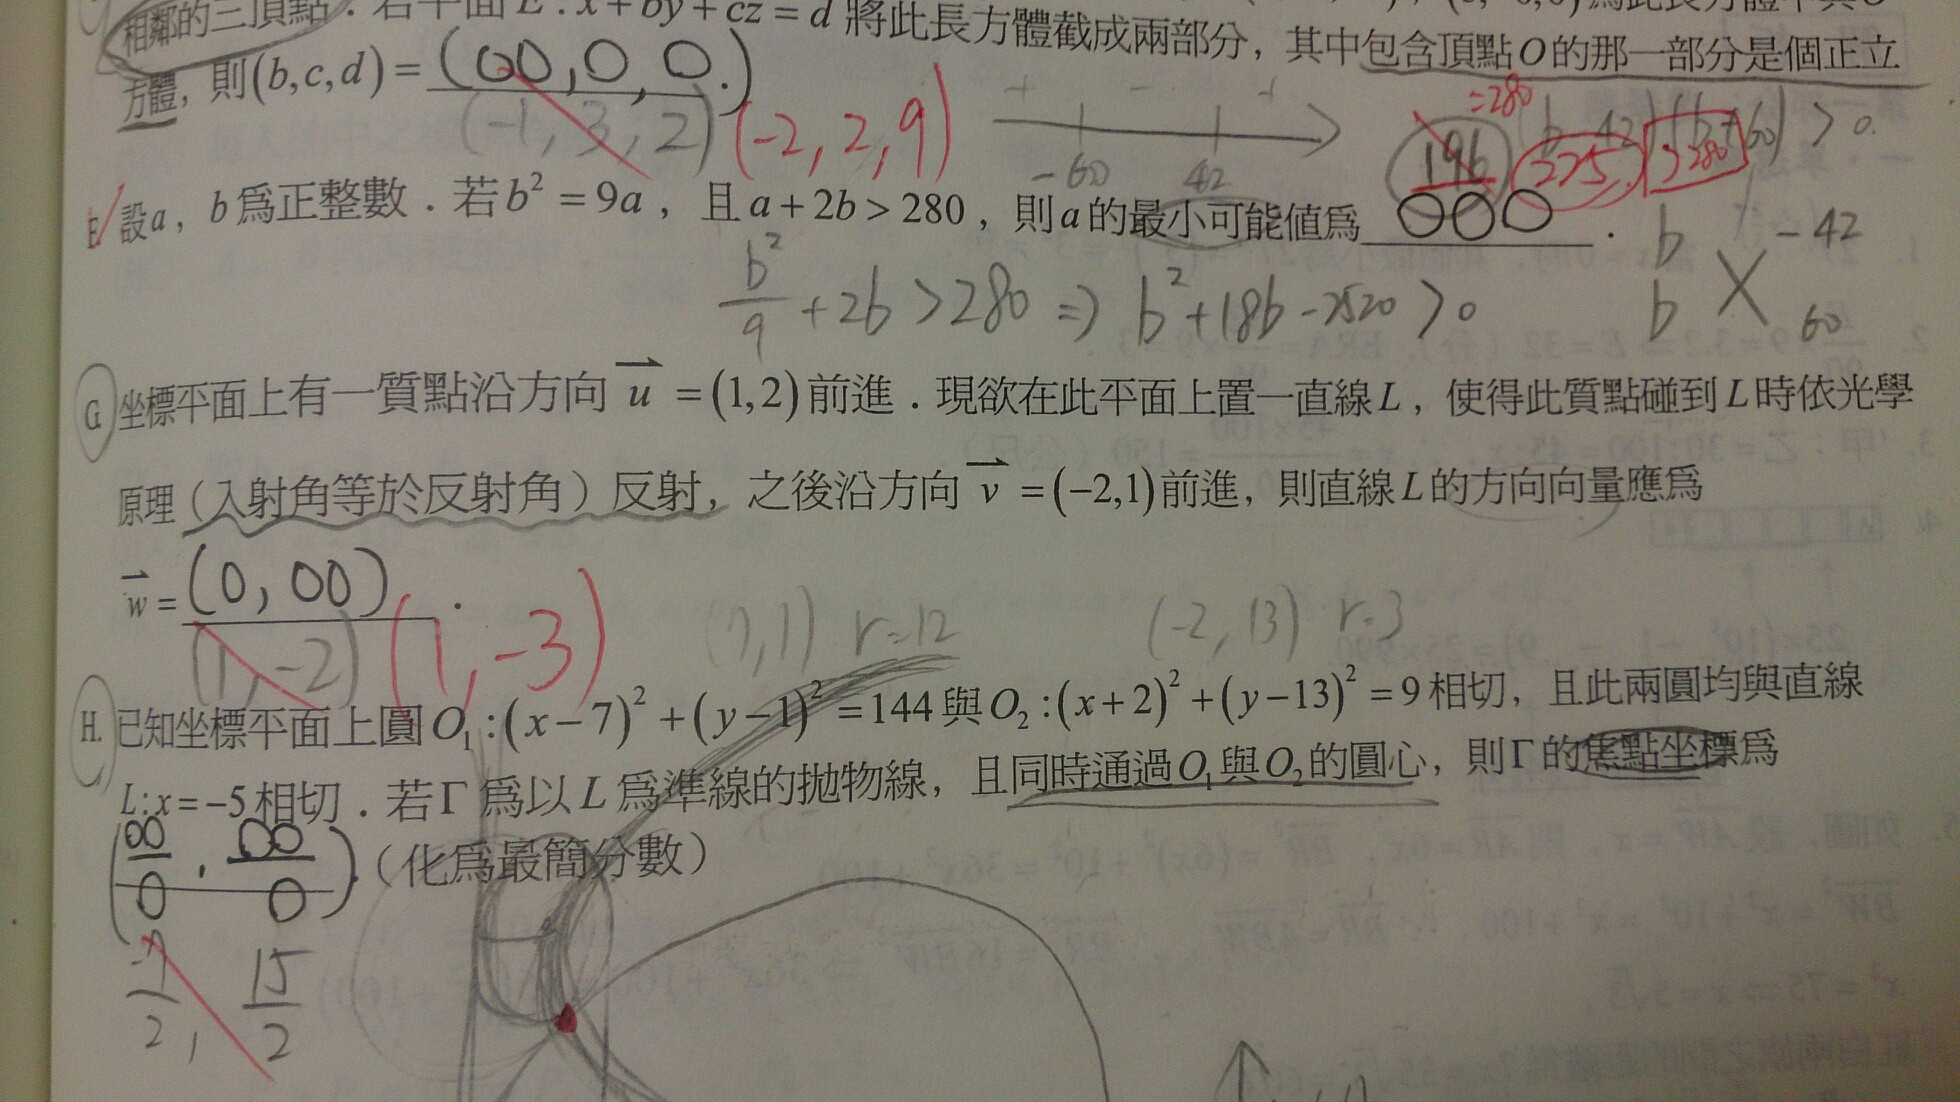 相鄰的三頂點．若平面E：x+by+cz=d將此長方體截成兩部分，其中包含頂點O的那一部分是個正立
方體，則(b,c,d)=(○○,○,○.)
(-1,3,2) (-2,2,9)
+ - +
-60 42
=280
196 225 (b-42)(b+60)>0
設a，b為正整數．若b²=9a，且a+2b>280，則a的最小可能值為○○○．
b²/9+2b>280 ⇒ b²+18b-2520>0
b -42
b 60
G. 坐標平面上有一質點沿方向u=(1,2)前進．現欲在此平面上置一直線L，使得此質點碰到L時依光學
原理(入射角等於反射角)反射，之後沿方向v=(-2,1)前進，則直線L的方向向量應為
w=(○,○○)．
(1,-2) (1,-3) (7,1) r=12 (-2,13) r=3
H. 已知坐標平面上圓O₁:(x-7)²+(y-1)²=144與O₂:(x+2)²+(y-13)²=9相切，且此兩圓均與直線
L:x=-5相切．若Γ為以L為準線的拋物線，且同時通過O₁與O₂的圓心，則Γ的焦點坐標為
(○○/○，○○/○).(化為最簡分數)
-1/2, 15/2